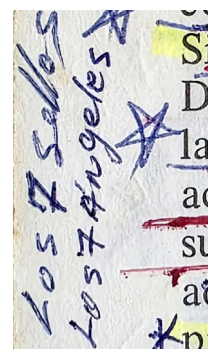 Los 7 Sellos
Los 7 Angeles
Si
D
la
ac
su
ac